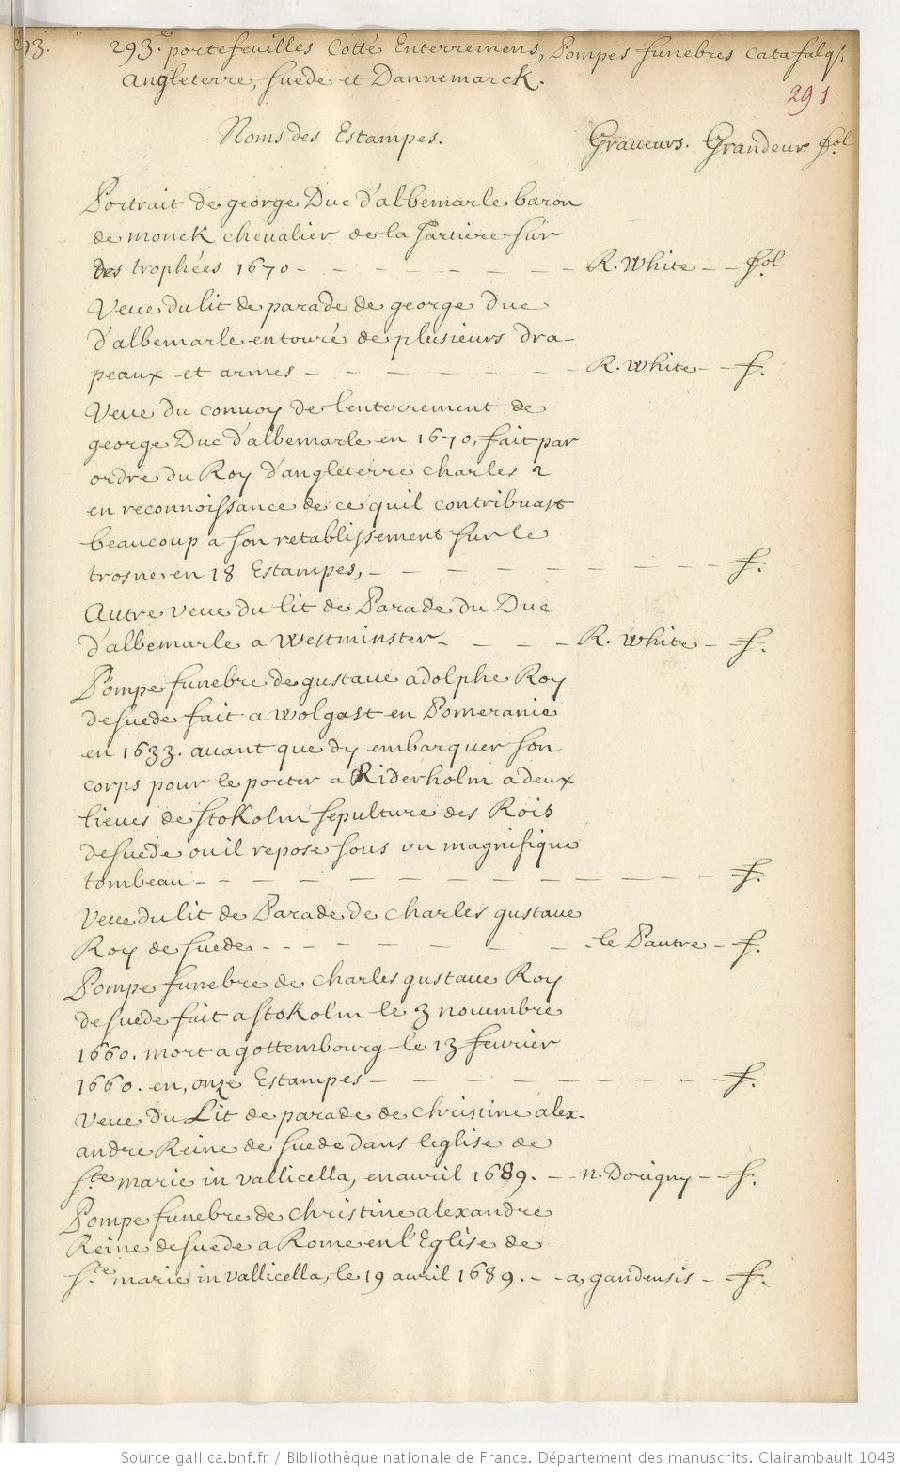 293.
293.e portefeuilles Cotté Enterremens, Pompes funebres catafalqs.
angleterre, suede et Dannemarck.
291
Noms des Estampes.
Graveurs. Grandeur fol
Portrait de george Duc d'albemarle baron
de monck chevalier de la Jartiere sur
des trophées 1670 - - - - - - - - R. White - - fol
Veue du lit de parade de george Duc
d'albemarle entouré de plusieurs dra-
peaux et armes - - - - - - - R. White - - f.
Veue du convoy de lenterrement de
george Duc d'albemarle en 1670, fait par
ordre du Roy d'angleterre charles 2
en reconnoissance de ce quil contribuast
beaucoup a son retablissement sur le
trosne en 18 Estampes, - - - - - - - - - - f.
Autre veue du lit de Parade du Duc
d'albemarle a Westminster - - - - R. White - f.
Pompe funebre de gustave adolphe Roy
de suede fait a Wolgast en Pomeranie
en 1633. avant que dy embarquer son
corps pour le porter a Riderholm a deux
lieues de stokolm sepulture des Rois
de suede ou il repose sous un magnifique
tombeau - - - - - - - - - - - - - - f.
Veue du lit de Parade de charles gustave
Roy de suede - - - - - - - - le Pautre - f.
Pompe funebre de charles gustave Roy
de suede fait a stokolm le 3 novembre
1660. mort a gottembourg le 13 fevrier
1660. en, onze Estampes - - - - - - - - - f.
Veue du Lit de parade de christine alex-
andre Reine de suede dans leglise de
ste marie in vallicella, en avril 1689. - - n. Dorigny - - f.
Pompe funebre de christine alexandre
Reine de suede a Rome en l'Eglise de
ste marie in vallicella, le 19 avril 1689. - - a, gandensis - f.
Source gallica.bnf.fr / Bibliothèque nationale de France. Département des manuscrits. Clairambault 1043